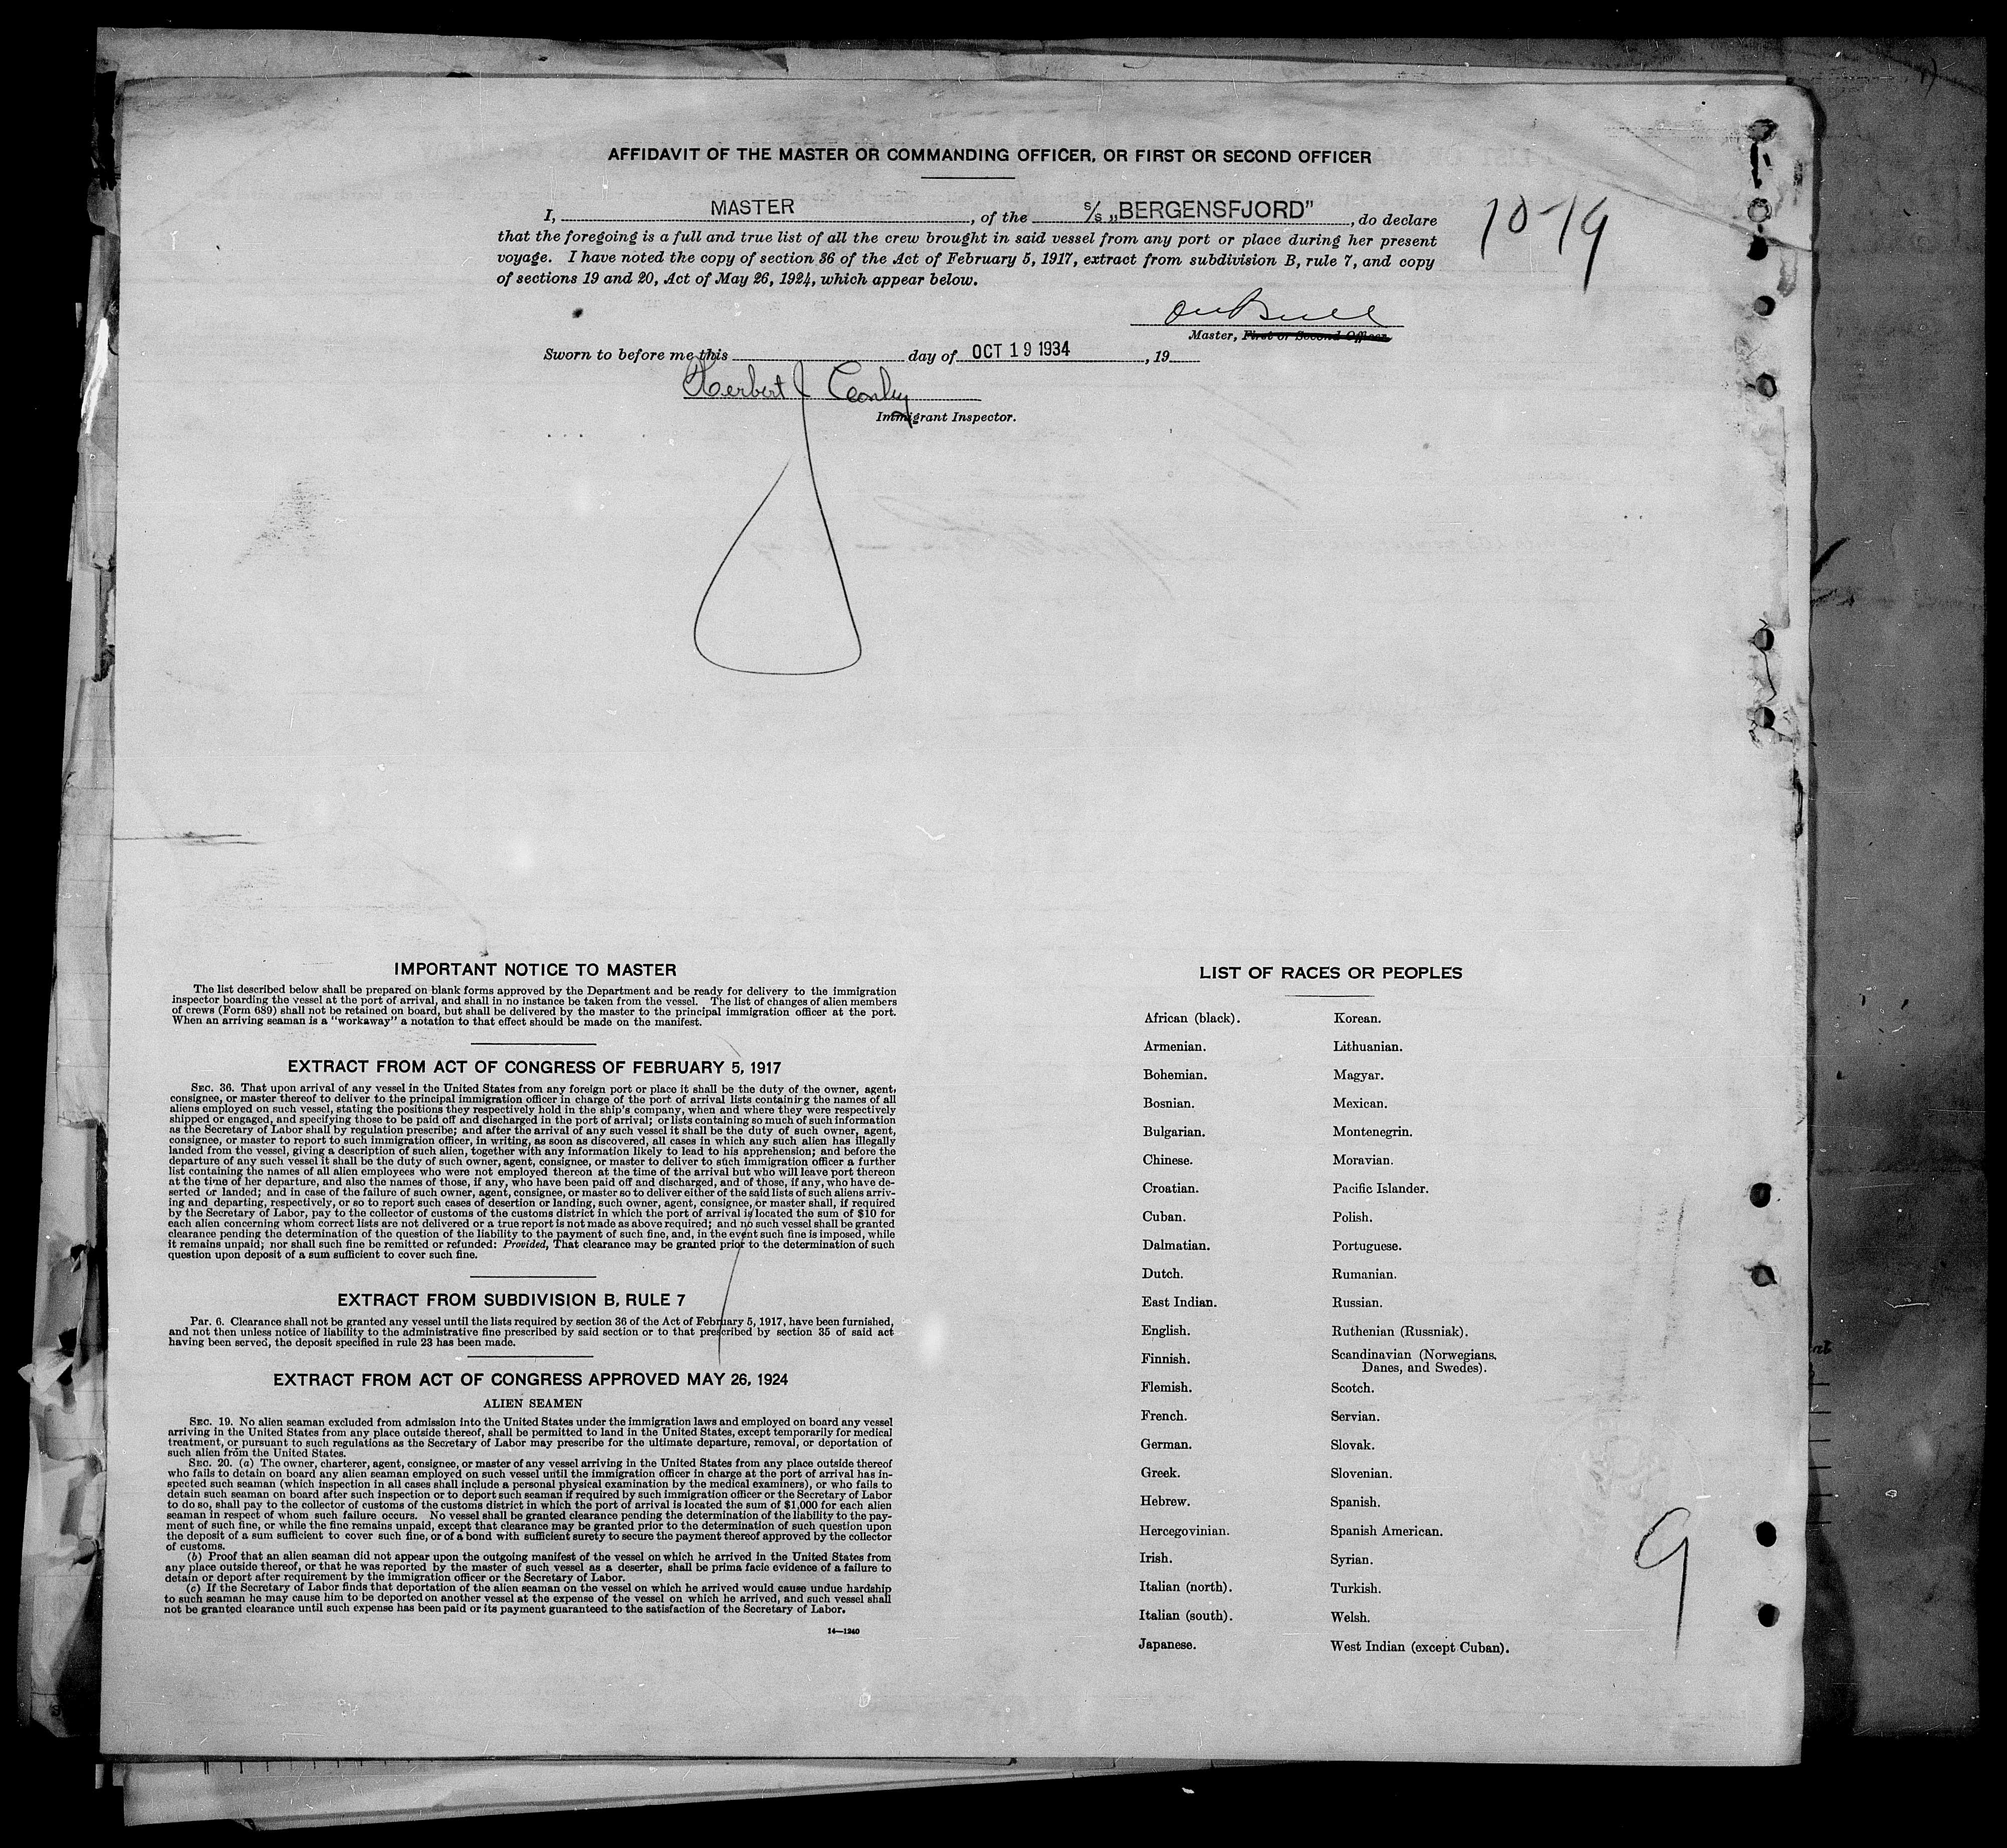 AFFIDAVIT OF THE MASTER OR COMMANDING OFFICER, OR FIRST OR SECOND OFFICER
I, MASTER, of the S/S „BERGENSFJORD”, do declare
10-19
that the foregoing is a full and true list of all the crew brought in said vessel from any port or place during her present
voyage. I have noted the copy of section 36 of the Act of February 5, 1917, extract from subdivision B, rule 7, and copy
of sections 19 and 20, Act of May 26, 1924, which appear below.
Master, First or Second Officer.
Sworn to before me this day of OCT 19 1934, 19
Herbert J Conley
Immigrant Inspector.
IMPORTANT NOTICE TO MASTER
The list described below shall be prepared on blank forms approved by the Department and be ready for delivery to the immigration
inspector boarding the vessel at the port of arrival, and shall in no instance be taken from the vessel. The list of changes of alien members
of crews (Form 689) shall not be retained on board, but shall be delivered by the master to the principal immigration officer at the port.
When an arriving seaman is a "workaway" a notation to that effect should be made on the manifest.
EXTRACT FROM ACT OF CONGRESS OF FEBRUARY 5, 1917
SEC. 36. That upon arrival of any vessel in the United States from any foreign port or place it shall be the duty of the owner, agent,
consignee, or master thereof to deliver to the principal immigration officer in charge of the port of arrival lists containing the names of all
aliens employed on such vessel, stating the positions they respectively hold in the ship's company, when and where they were respectively
shipped or engaged, and specifying those to be paid off and discharged in the port of arrival; or lists containing so much of such information
as the Secretary of Labor shall by regulation prescribe; and after the arrival of any such vessel it shall be the duty of such owner, agent,
consignee, or master to report to such immigration officer, in writing, as soon as discovered, all cases in which any such alien has illegally
landed from the vessel, giving a description of such alien, together with any information likely to lead to his apprehension; and before the
departure of any such vessel it shall be the duty of such owner, agent, consignee, or master to deliver to such immigration officer a further
list containing the names of all alien employees who were not employed thereon at the time of the arrival but who will leave port thereon
at the time of her departure, and also the names of those, if any, who have been paid off and discharged, and of those, if any, who have de-
serted or landed; and in case of the failure of such owner, agent, consignee, or master so to deliver either of the said lists of such aliens arriv-
ing and departing, respectively, or so to report such cases of desertion or landing, such owner, agent, consignee, or master shall, if required
by the Secretary of Labor, pay to the collector of customs of the customs district in which the port of arrival is located the sum of $10 for
each alien concerning whom correct lists are not delivered or a true report is not made as above required; and no such vessel shall be granted
clearance pending the determination of the question of the liability to the payment of such fine, and, in the event such fine is imposed, while
it remains unpaid; nor shall such fine be remitted or refunded: Provided, That clearance may be granted prior to the determination of such
question upon deposit of a sum sufficient to cover such fine.
EXTRACT FROM SUBDIVISION B, RULE 7
Par. 6. Clearance shall not be granted any vessel until the lists required by section 36 of the Act of February 5, 1917, have been furnished,
and not then unless notice of liability to the administrative fine prescribed by said section or to that prescribed by section 35 of said act
having been served, the deposit specified in rule 23 has been made.
EXTRACT FROM ACT OF CONGRESS APPROVED MAY 26, 1924
ALIEN SEAMEN
SEC. 19. No alien seaman excluded from admission into the United States under the immigration laws and employed on board any vessel
arriving in the United States from any place outside thereof, shall be permitted to land in the United States, except temporarily for medical
treatment, or pursuant to such regulations as the Secretary of Labor may prescribe for the ultimate departure, removal, or deportation of
such alien from the United States.
SEC. 20. (a) The owner, charterer, agent, consignee, or master of any vessel arriving in the United States from any place outside thereof
who fails to detain on board any alien seaman employed on such vessel until the immigration officer in charge at the port of arrival has in-
spected such seaman (which inspection in all cases shall include a personal physical examination by the medical examiners), or who fails to
detain such seaman on board after such inspection or to deport such seaman if required by such immigration officer or the Secretary of Labor
to do so, shall pay to the collector of customs of the customs district in which the port of arrival is located the sum of $1,000 for each alien
seaman in respect of whom such failure occurs. No vessel shall be granted clearance pending the determination of the liability to the pay-
ment of such fine, or while the fine remains unpaid, except that clearance may be granted prior to the determination of such question upon
the deposit of a sum sufficient to cover such fine, or of a bond with sufficient surety to secure the payment thereof approved by the collector
of customs.
(b) Proof that an alien seaman did not appear upon the outgoing manifest of the vessel on which he arrived in the United States from
any place outside thereof, or that he was reported by the master of such vessel as a deserter, shall be prima facie evidence of a failure to
detain or deport after requirement by the immigration officer or the Secretary of Labor.
(c) If the Secretary of Labor finds that deportation of the alien seaman on the vessel on which he arrived would cause undue hardship
to such seaman he may cause him to be deported on another vessel at the expense of the vessel on which he arrived, and such vessel shall
not be granted clearance until such expense has been paid or its payment guaranteed to the satisfaction of the Secretary of Labor.
14—1240
LIST OF RACES OR PEOPLES
African (black). Korean.
Armenian. Lithuanian.
Bohemian. Magyar.
Bosnian. Mexican.
Bulgarian. Montenegrin.
Chinese. Moravian.
Croatian. Pacific Islander.
Cuban. Polish.
Dalmatian. Portuguese.
Dutch. Rumanian.
East Indian. Russian.
English. Ruthenian (Russniak).
Finnish. Scandinavian (Norwegians,
Danes, and Swedes).
Flemish. Scotch.
French. Servian.
German. Slovak.
Greek. Slovenian.
Hebrew. Spanish.
Hercegovinian. Spanish American.
Irish. Syrian.
Italian (north). Turkish.
Italian (south). Welsh.
Japanese. West Indian (except Cuban).
9